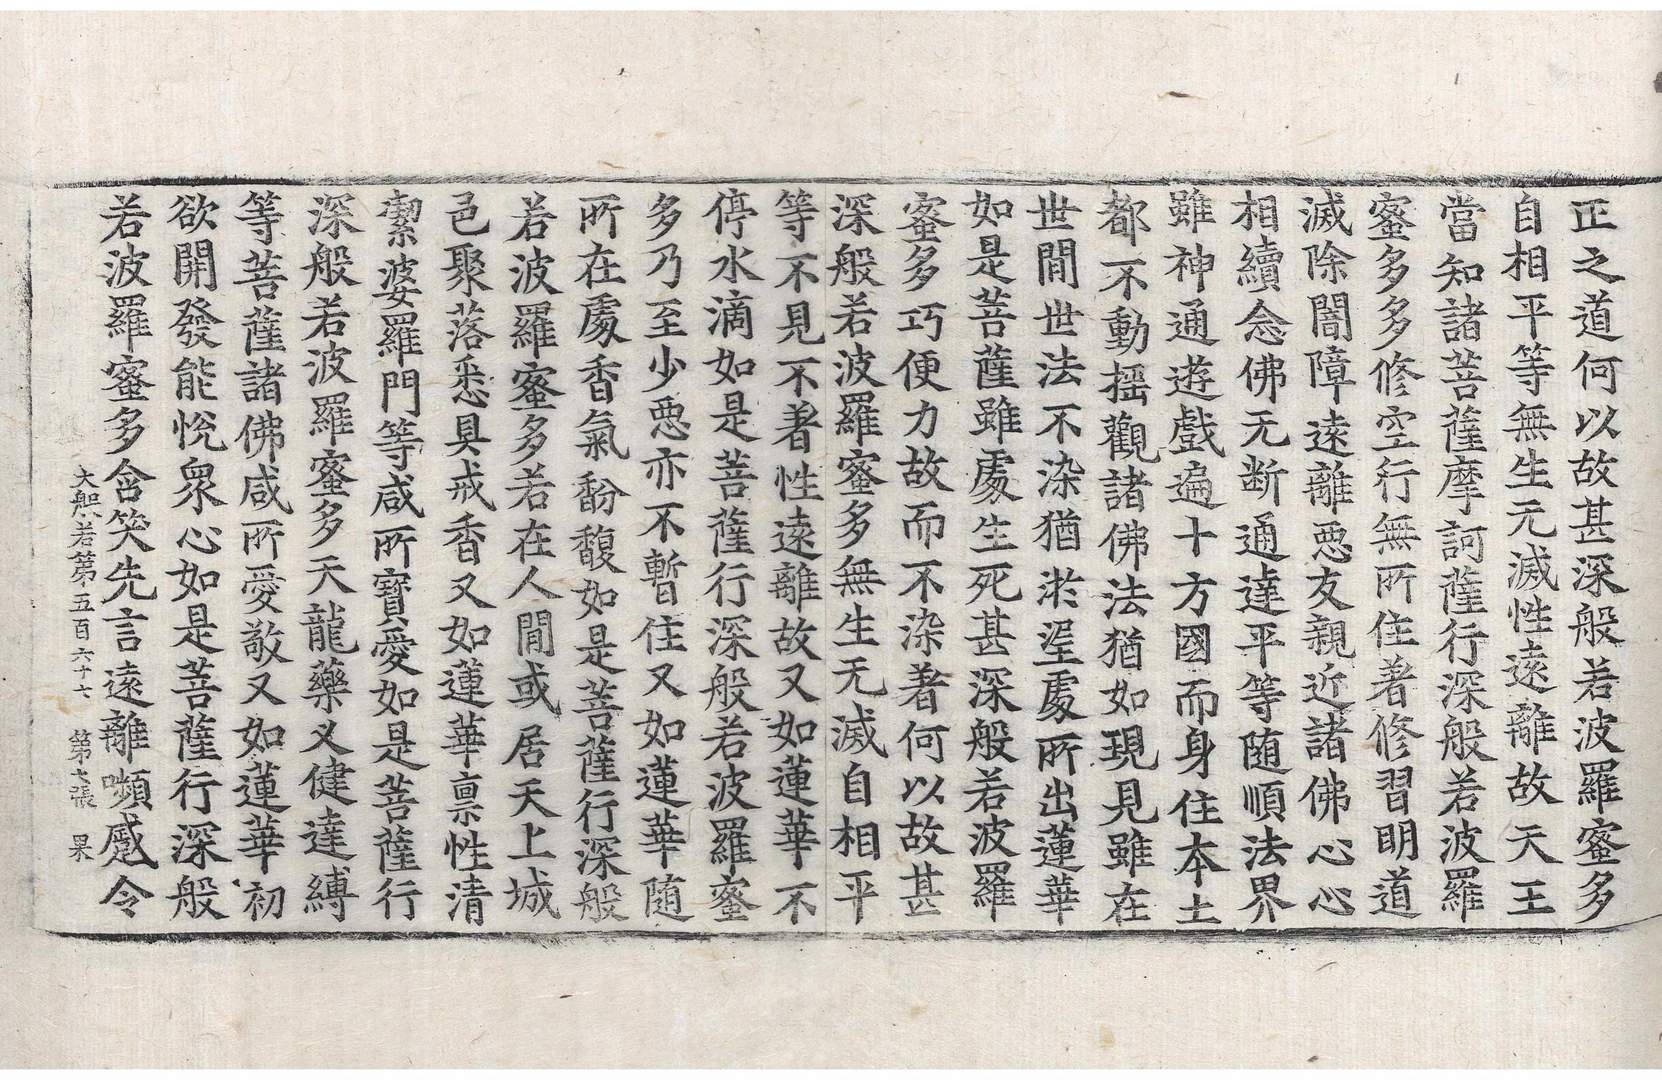 正之道何以故甚深般若波羅蜜多
自相平等無生无滅性遠離故天王
當知諸菩薩摩訶薩行深般若波羅
蜜多多修空行無所住著修習明道
滅除闇障遠離惡友親近諸佛心心
相續念佛无断通達平等随順法界
雖神通遊戲遍十方國而身住本土
都不動揺觀諸佛法猶如現見雖在
世間世法不染猶淤埿處所出蓮華
如是菩薩雖處生死甚深般若波羅
蜜多巧便力故而不染著何以故甚
深般若波羅蜜多無生无滅自相平
等不見不著性遠離故又如蓮華不
停水滴如是菩薩行深般若波羅蜜
多乃至少惡亦不暫住又如蓮華随
所在處香氣馚馥如是菩薩行深般
若波羅蜜多若在人間或居天上城
邑聚落悉具戒香又如蓮華禀性清
潔婆羅門等咸所寶愛如是菩薩行
深般若波羅蜜多天龍藥叉健達縛
等菩薩諸佛咸所愛敬又如蓮華初
欲開發能悅衆心如是菩薩行深般
若波羅蜜多含笑先言遠離嚬蹙令
大般若第五百六十七 第七張 果